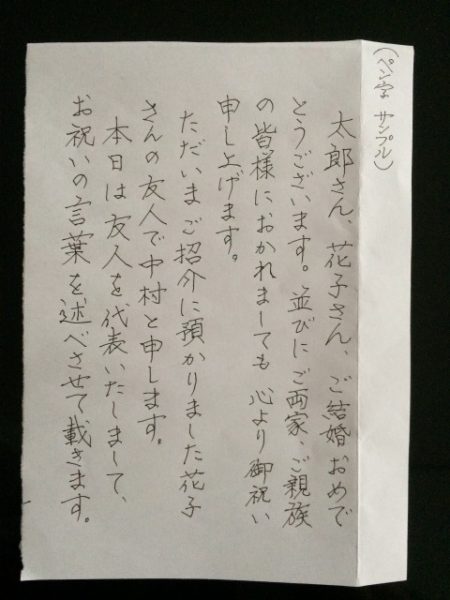 （ペン字 サンプル）
太郎さん、花子さん、ご結婚おめで
とうございます。並びにご両家、ご親族
の皆様におかれましても 心より御祝い
申し上げます。
ただいまご招介に預かりました花子
さんの友人で中村と申します。
本日は友人を代表いたしまして、
お祝いの言葉を述べさせて載きます。